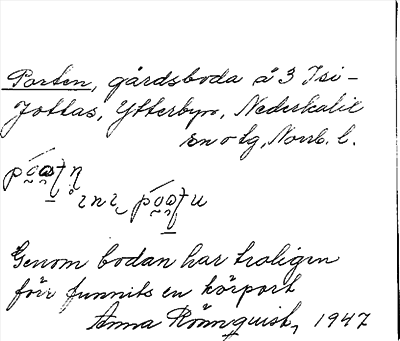 Porten, gårdsboda å 3 Isi-
Jottas, Ytterbyn, Nederkalix
sn o tg, Norrb. l.
Genom bodan har troligen
förr funnits en körport
Anna Rönnquist, 1947